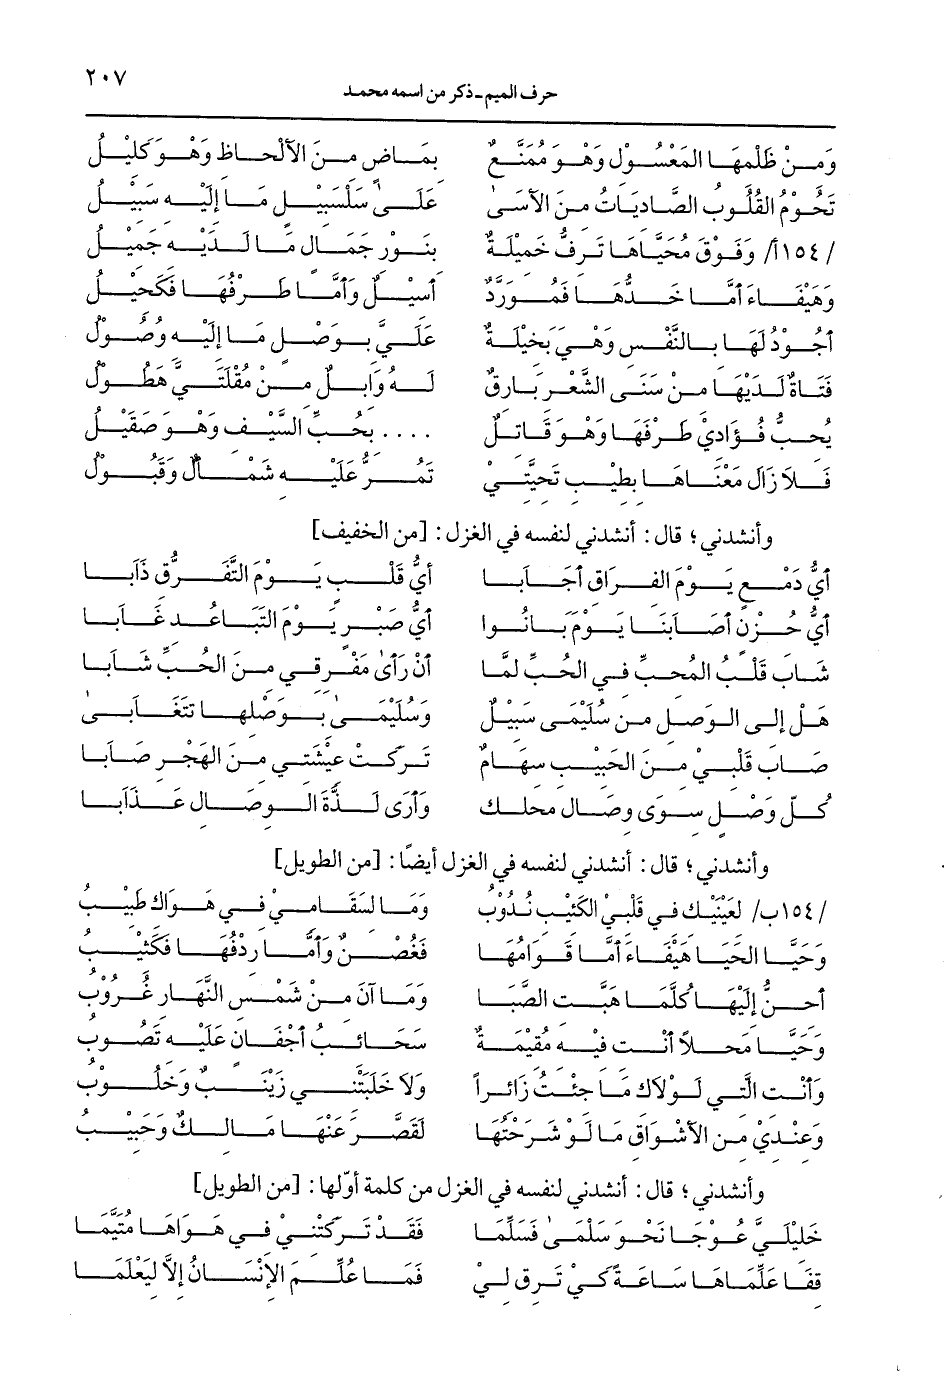 حرف الميم ـ ذكر من اسمه محمد ٢٠٧
وَمِنْ ظَلْمِهَا المَعْسُولِ وَهْوَ مُمَنَّعٌ بِمَاضٍ مِنَ الأَلْحَاظِ وَهْوَ كَلِيْلُ
تَحُوْمُ القُلُوبُ الصَّادِيَاتُ مِنَ الأَسَىٰ عَلَىٰ سَلْسَبِيْلٍ مَا إِلَيْهِ سَبِيْلُ
/١٥٤أ/ وَفَوْقَ مُحَيَّاهَا تَرِفُّ خَمِيْلَةٌ بِنُوْرِ جَمَالٍ مَا لَدَيْهِ جَمِيْلُ
وَهَيْفَاءَ أَمَّا خَدُّهَا فَمُوَرَّدٌ أَسِيْلٌ وَأَمَّا طَرْفُهَا فَكَحِيْلُ
أَجُوْدُ لَهَا بِالنَّفْسِ وَهْيَ بَخِيْلَةٌ عَلَيَّ بِوَصْلٍ مَا إِلَيْهِ وُصُوْلُ
فَتَاةٌ لَدَيْهَا مِنْ سَنَى الثَّغْرِ بَارِقٌ لَهُ وَابِلٌ مِنْ مُقْلَتَيَّ هَطُوْلُ
يُحِبُّ فُؤَادِيْ طَرْفَهَا وَهْوَ قَاتِلٌ .... يُحِبُّ السَّيْفَ وَهْوَ صَقِيْلُ
فَلاَ زَالَ مَغْنَاهَا بِطِيْبِ تَحِيَّتِيْ تَمُرُّ عَلَيْهِ شَمْأَلٌ وَقَبُوْلُ
وأنشدني؛ قال: أنشدني لنفسه في الغزل: [من الخفيف]
أَيُّ دَمْعٍ يَوْمَ الفِرَاقِ أَجَابَا أَيُّ قَلْبٍ يَوْمَ التَّفَرُّقِ ذَابَا
أَيُّ حُزْنٍ أَصَابَنَا يَوْمَ بَانُوا أَيُّ صَبْرٍ يَوْمَ التَّبَاعُدِ غَابَا
شَابَ قَلْبُ المُحِبِّ فِي الحُبِّ لَمَّا أَنْ رَأَىٰ مَفْرِقِي مِنَ الحُبِّ شَابَا
هَلْ إِلى الوَصْلِ مِن سُلَيْمَى سَبِيْلٌ وَسُلَيْمَىٰ بِوَصْلِهَا تَتَغَابَىٰ
صَابَ قَلْبِيْ مِنَ الحَبِيْبِ سِهَامٌ تَرَكَتْ عِيْشَتِي مِنَ الهَجْرِ صَابَا
كُلُّ وَصْلٍ سِوَى وِصَالِ محلك وَأَرَى لَذَّةَ الوِصَالِ عَذَابَا
وأنشدني؛ قال: أنشدني لنفسه في الغزل أيضاً: [من الطويل]
/١٥٤ب/ لَعَيْنَيْكَ فِي قَلْبِي الكَئِيْبِ نُدُوْبُ وَمَا لِسَقَامِي فِي هَوَاكَ طَبِيْبُ
وَحَيَّا الحَيَا هَيْفَاءَ أَمَّا قَوَامُهَا فَغُصْنٌ وَأَمَّا رِدْفُهَا فَكَثِيْبُ
أَحِنُّ إِلَيْهَا كُلَّمَا هَبَّتِ الصَّبَا وَمَا آنَ مِنْ شَمْسِ النَّهَارِ غُرُوْبُ
وَحَيَّا مَحَلاًّ أَنْتِ فِيْهِ مُقِيْمَةٌ سَحَائِبُ أَجْفَانٍ عَلَيْهِ تَصُوْبُ
وَأَنْتِ الَّتِي لَوْلاَكِ مَا جِئْتُ زَائِراً وَلاَ خَلَبَتْنِي زَيْنَبٌ وَخَلُوْبُ
وَعِنْدِيْ مِنَ الأَشْوَاقِ مَا لَوْ شَرَحْتُهَا لَقَصَّرَ عَنْهَا مَالِكٌ وَحَبِيْبُ
وأنشدني؛ قال: أنشدني لنفسه في الغزل من كلمة أوّلها: [من الطويل]
خَلِيْلَيَّ عُوْجَا نَحْوَ سَلْمَىٰ فَسَلِّمَا فَقَدْ تَرَكَتْنِيْ فِي هَوَاهَا مُتَيَّمَا
قِفَا عَلِّمَاهَا سَاعَةً كَيْ تَرِقَّ لِيْ فَمَا عُلِّمَ الإِنْسَانُ إِلاَّ لِيَعْلَمَا